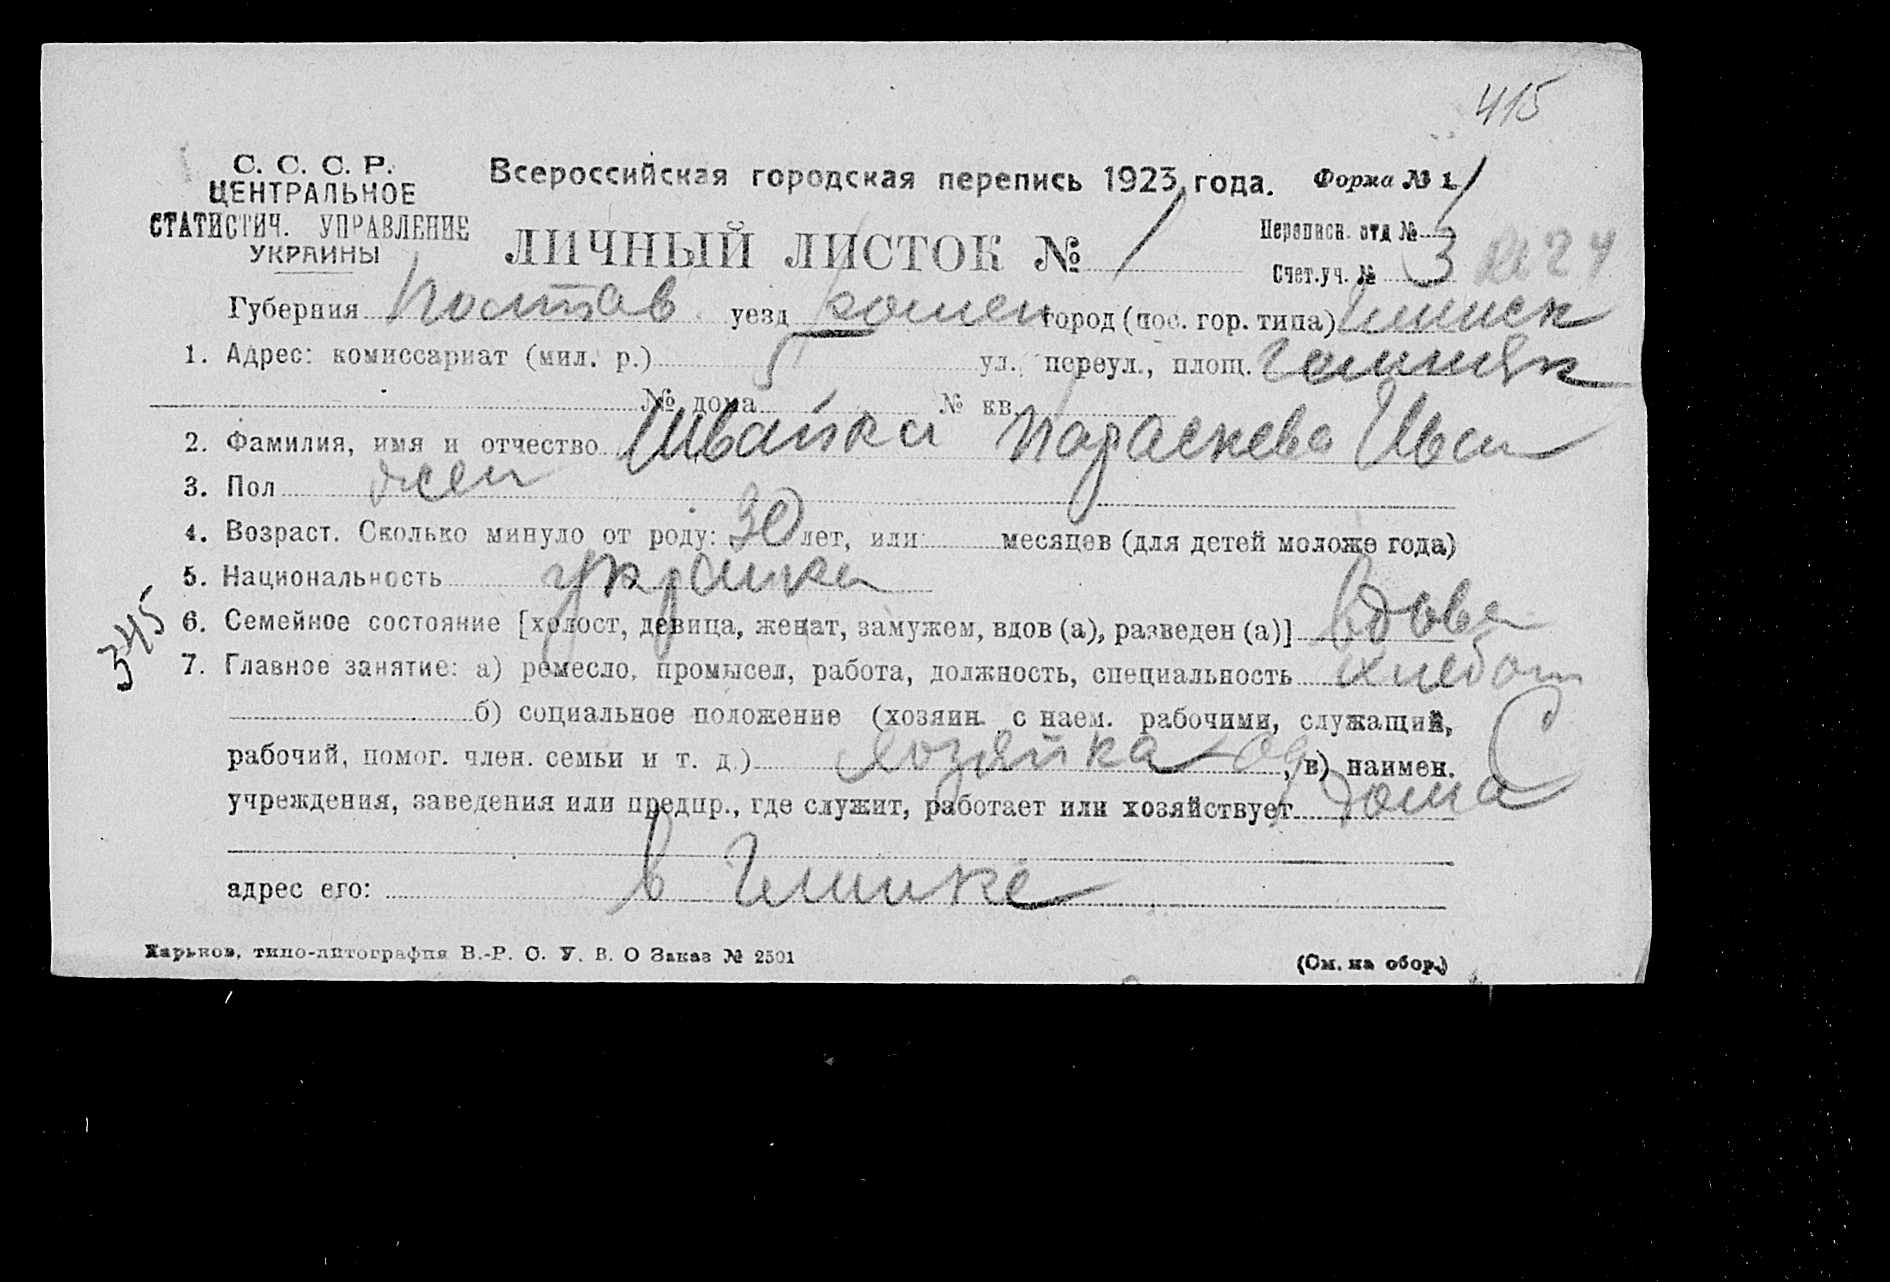 415
С. С. С. Р.
ЦЕНТРАЛЬНОЕ
СТАТИСТИЧ. УПРАВЛЕНИЕ
УКРАИНЫ
Всероссийская городская перепись 1923 года. Форма № 1
ЛИЧНЫЙ ЛИСТОК № 1
Переписн. отд № 1
Счет.уч. № 3
Губерния Полтав уезд ромен город (пос. гор. типа)
1. Адрес: комиссариат (мил. р.) 5 ул., переул., площ.
№ дома № кв.
2. Фамилия, имя и отчество Швайка Параскева Иван
3. Пол жен
4. Возраст. Сколько минуло от роду: 30 лет, или месяцев (для детей моложе года)
5. Национальность украинка
6. Семейное состояние [холост, девица, женат, замужем, вдов (а), разведен (а)] вдова
345
7. Главное занятие: а) ремесло, промысел, работа, должность, специальность хлебоп
б) социальное положение (хозяин с наем. рабочими, служащий,
рабочий, помог. член. семьи и т. д.) хозяйка од, в) наимен.
учреждения, заведения или предпр., где служит, работает или хозяйствует дома
адрес его: в Глинске
Харьков, типо-литография В.-Р. С. У. В. О Заказ № 2501
(См. на обор.)